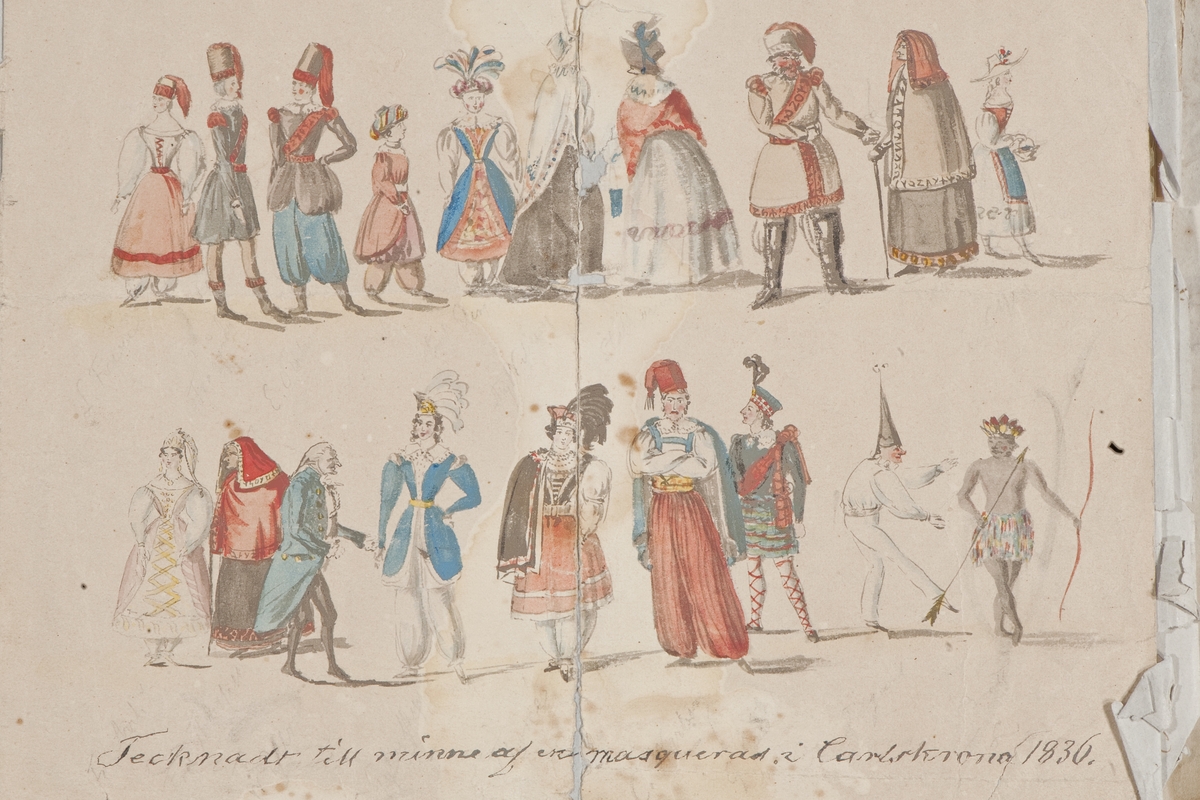 Tecknadt till minne af en masquerad. i Carlskrona 1836.